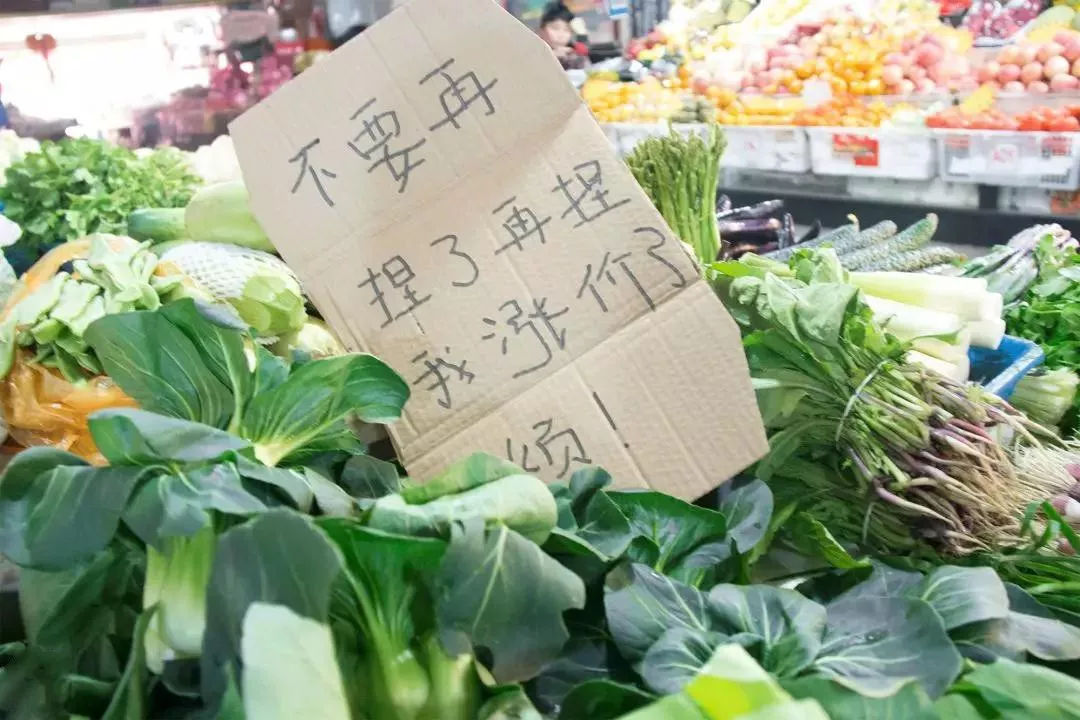 不要再
捏了再捏
我涨价了
!